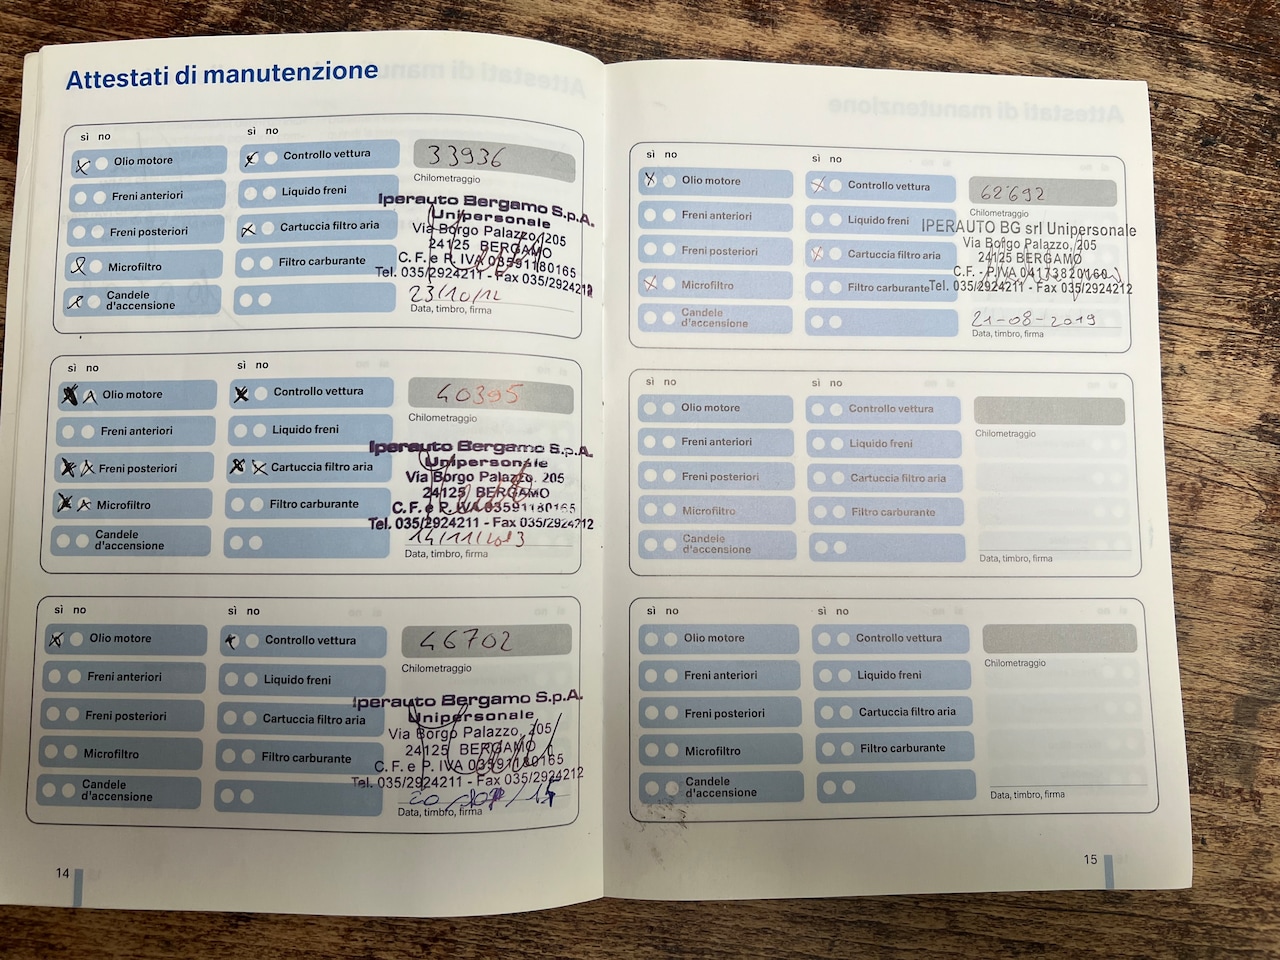 Attestati di manutenzione
sì no
sì no
Olio motore
Controllo vettura
33936
Chilometraggio
Freni anteriori
Liquido freni
Freni posteriori
Cartuccia filtro aria
Microfiltro
Filtro carburante
Candele
d'accensione
Iperauto Bergamo S.p.A.
Unipersonale
Via Borgo Palazzo, 205
24125 BERGAMO
C. F. e P. IVA 03591180165
Tel. 035/2924211 - Fax 035/2924212
23/10/12
Data, timbro, firma
sì no
sì no
Olio motore
Controllo vettura
40395
Chilometraggio
Freni anteriori
Liquido freni
Freni posteriori
Cartuccia filtro aria
Microfiltro
Filtro carburante
Candele
d'accensione
Iperauto Bergamo S.p.A.
Unipersonale
Via Borgo Palazzo, 205
24125 BERGAMO
C. F. e P. IVA 03591180165
Tel. 035/2924211 - Fax 035/2924212
14/11/2013
Data, timbro, firma
sì no
sì no
Olio motore
Controllo vettura
46702
Chilometraggio
Freni anteriori
Liquido freni
Freni posteriori
Cartuccia filtro aria
Microfiltro
Filtro carburante
Candele
d'accensione
Iperauto Bergamo S.p.A.
Unipersonale
Via Borgo Palazzo, 205
24125 BERGAMO
C. F. e P. IVA 03591180165
Tel. 035/2924211 - Fax 035/2924212
Data, timbro, firma
14
sì no
sì no
Olio motore
Controllo vettura
62692
Chilometraggio
Freni anteriori
Liquido freni
Freni posteriori
Cartuccia filtro aria
Microfiltro
Filtro carburante
Candele
d'accensione
IPERAUTO BG srl Unipersonale
Via Borgo Palazzo, 205
24125 BERGAMO
C.F. - P.IVA 04173820160
Tel. 035/2924211 - Fax 035/2924212
21-08-2019
Data, timbro, firma
sì no
sì no
Olio motore
Controllo vettura
Chilometraggio
Freni anteriori
Liquido freni
Freni posteriori
Cartuccia filtro aria
Microfiltro
Filtro carburante
Candele
d'accensione
Data, timbro, firma
sì no
sì no
Olio motore
Controllo vettura
Chilometraggio
Freni anteriori
Liquido freni
Freni posteriori
Cartuccia filtro aria
Microfiltro
Filtro carburante
Candele
d'accensione
Data, timbro, firma
15